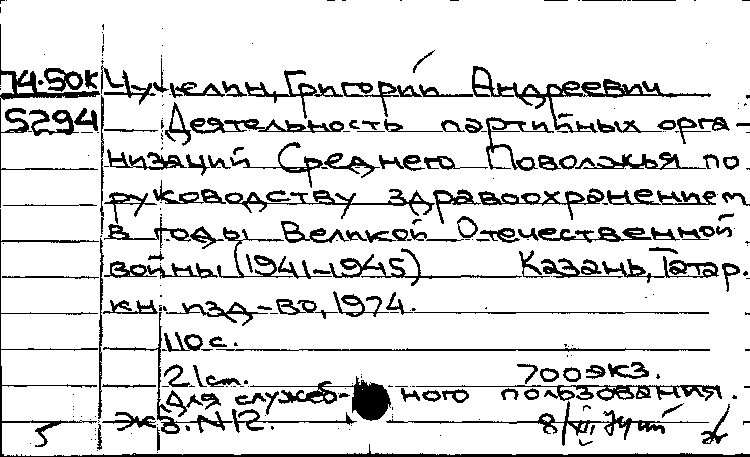 74-50К Чучкелин, Григорий Андреевич
5294 Деятельность партийных орга-
низаций Среднего Поволжья по
руководству здравоохранением
в годы Великой Отечественной
войны (1941-1945) Казань, Татар.
кн. изд-во, 1974.
110 с.
21 см. 700 экз.
Для служеб- ного пользования.
экз. N 12. 8/XII
5